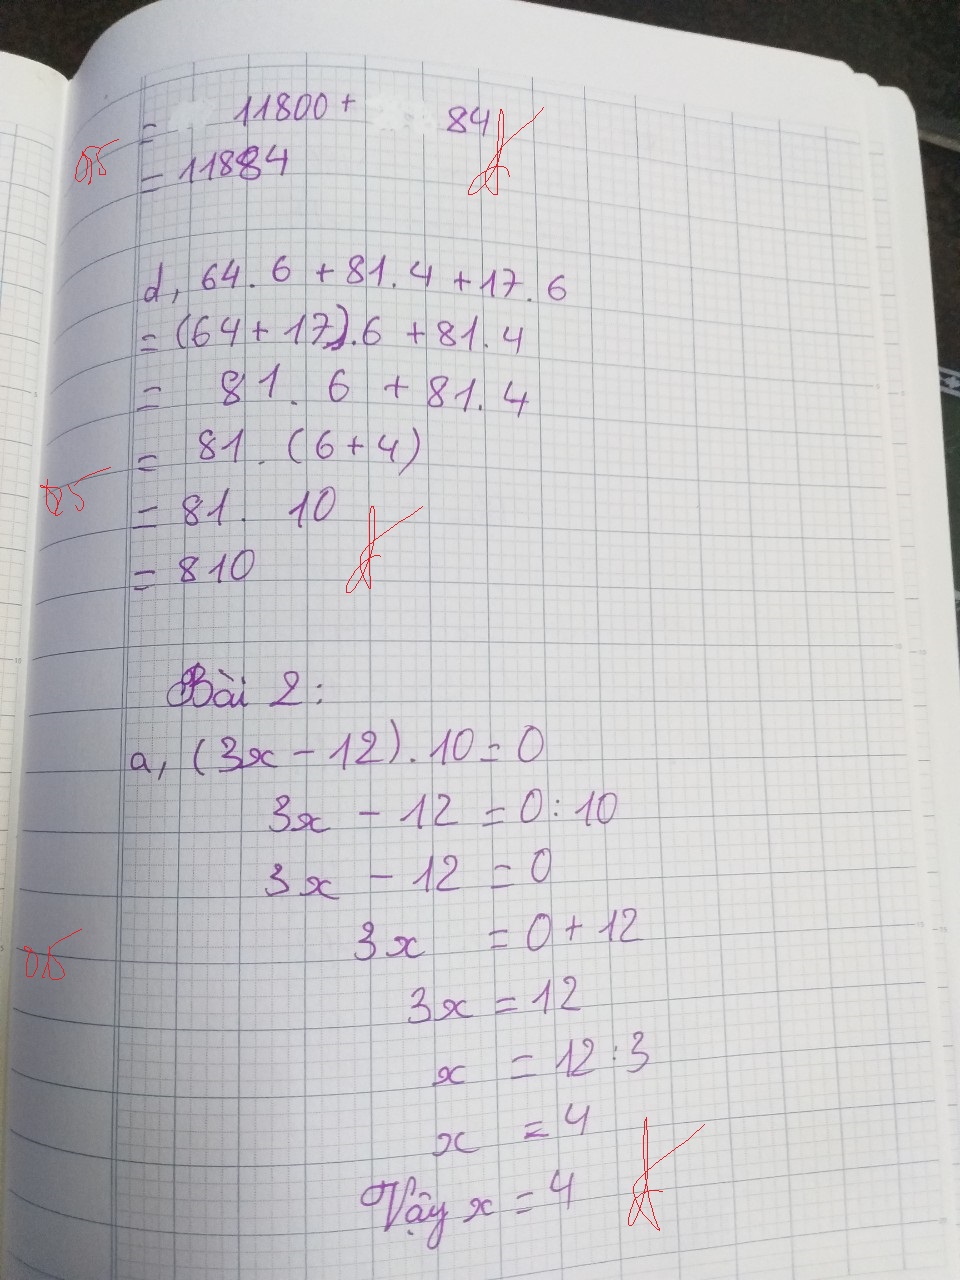 = 11800 + 84
0,5
= 11884
d, 64.6 + 81.4 + 17.6
= (64 + 17).6 + 81.4
= 81.6 + 81.4
= 81.(6+4)
0,5
= 81. 10
= 810
Bài 2:
a, (3x - 12).10 = 0
3x - 12 = 0:10
3x - 12 = 0
3x = 0 + 12
0,5
3x = 12
x = 12:3
x = 4
Vậy x = 4